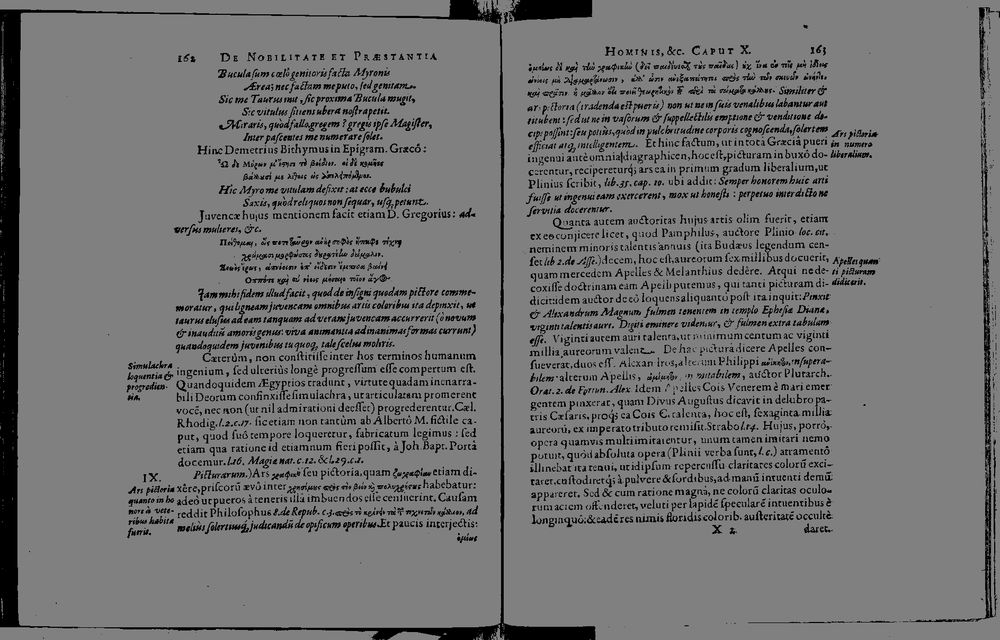 162 DE NOBILITATE ET PRÆSTANTIA
Bucula sum cælo genitoris facta Myronis
Ærea; nec factam me puto, sed genitam.
Sic me Taurus init, sic proxima Bucula mugit,
Sic vitulus sitiens ubera nostra petit.
Miraris, quòd fallo gregem? gregis ipse Magister,
Inter pascentes me numerare solet.
Hinc Demetrius Bithymus in Epigram. Græcô:
Hîc Myro me vitulam defixit: at ecce bubulci
Saxis, quòd reliquos non sequar, usq; petunt.
Juvencæ hujus mentionem facit etiam D. Gregorius: ad-
versus mulieres, &c.
Jam mihi fidem illud facit, quod de insigni quodam pictore comme-
moratur, qui ligneam juvencam omnibus artis coloribus ita depinxit, ut
taurus elusus ad eam tanquam ad veram juvencam accurrerit (ô novum
& inauditũ amoris genus: viva animantia ad inanimas formas currunt)
quandoquidem juvenibus tu quoq, tale scelus moliris.
Cæterùm, non constitisse inter hos terminos humanum
ingenium, sed ulteriùs longè progressum esse compertum est.
Quandoquidem Ægyptios tradunt, virtute quadam inenarra-
bili Deorum confinxisse simulachra, ut articulatam promerent
vocẽ, nec non (ut nil admirationi deesset) progrederentur. Cæl.
Rhodig. l.2.c.17. sic etiam non tantùm ab Albertô M. fictile ca-
put, quod suô tempore loqueretur, fabricatum legimus: sed
etiam qua ratione id etiamnum fieri possit, à Joh. Bapt. Portâ
docemur. l.16. Magiæ nat. c.12. & l.19.c.1.
Simulachra
loquentia &
progredien-
tia.
IX.
Ars pictoria
quanto in ho
nore à vete-
ribus habita
fuerit.
Picturarum.) Ars γραφικὴ seu pictoria, quam ζωγραφίαν etiam di-
xêre, priscorũ ævô inter habebatur:
adeò ut pueros à teneris illâ imbuendos esse censuerint. Causam
reddit Philosophus 8. de Repub. c.3. ad
melius solertiusq, judicandũ de opificum operibus. Et paucis interjectis:
ὁμοίως
HOMINIS, &c. CAPUT X. 163
Similiter &
ars pictoria (tradenda est pueris) non ut ne in suis venalibus labantur aut
titubent: sed ut ne in vasorum & suppellectilis emptione & venditione de-
cipi possint: seu potius, quod in pulchritudine corporis cognoscenda, solertem
efficiat atq, intelligentem. Et hinc factum, ut in totâ Græciâ pueri
ingenui ante omnia diagraphicen, hoc est, picturam in buxô do-
cerentur, recipereturq; ars ea in primum gradum liberalium, ut
Plinius scribit, lib.35. cap.10. ubi addit: Semper honorem huic arti
fuisse ut ingenui eam exercerent, mox ut honesti: perpetuo interdicto ne
servitia docerentur.
Ars pictoria
in numero
liberalium.
Quanta autem auctoritas hujus artis olim fuerit, etiam
ex eo conjicere licet, quod Pamphilus, auctore Plinio loc. cit.
neminem minoris talentis annuis (ita Budæus legendum cen-
set lib 2. de Asse.) decem, hoc est, aureorum sex millibus docuerit,
quam mercedem Apelles & Melanthius dedêre. Atqui ne de-
coxisse doctrinam eam Apelli putemus, qui tanti picturam di-
dicit: idem auctor de eô loquens aliquanto pòst ita inquit: Pinxit
& Alexandrum Magnum fulmen tenentem in templo Ephesiæ Dianæ,
viginti talentis auri. Digiti eminere videntur, & fulmen extra tabulam
esse. Viginti autem auri talenta, ut minimum centum ac viginti
millia aureorum valent. De hac picturâ dicere Apelles con-
sueverat, duos esse Alexandros, alterum Philippi insupera-
bilem: alterum Apellis, inimitabilem, auctôr Plutarch.
Orat. 2. de Fortun. Alex. Idem Apelles Cois Venerem è mari emer
gentem pinxerat, quam Divus Augustus dicavit in delubro pa-
tris Cæsaris, proq; ea Cois C. talenta, hoc est, sexaginta millia
aureorũ, ex imperato tributo remisit. Strabo l.14. Hujus, porrò,
opera quamvis multi imitarentur, unum tamen imitari nemo
potuit, quòd absoluta opera (Plinii verba sunt, l.c.) atramentô
illinebat ita tenui, ut id ipsum repercussu claritates colorũ exci-
taret, custodiretq; à pulvere & sordibus, ad manũ intuenti demũ
appareret. Sed & cum ratione magnâ, ne colorũ claritas oculo-
rum aciem offenderet, veluti per lapidẽ specularẽ intuentibus è
longinquô: & eadẽ res nimis floridis colorib. austeritatẽ occultè
Apelles quan
ti picturam
didicerit.
X 2 daret.